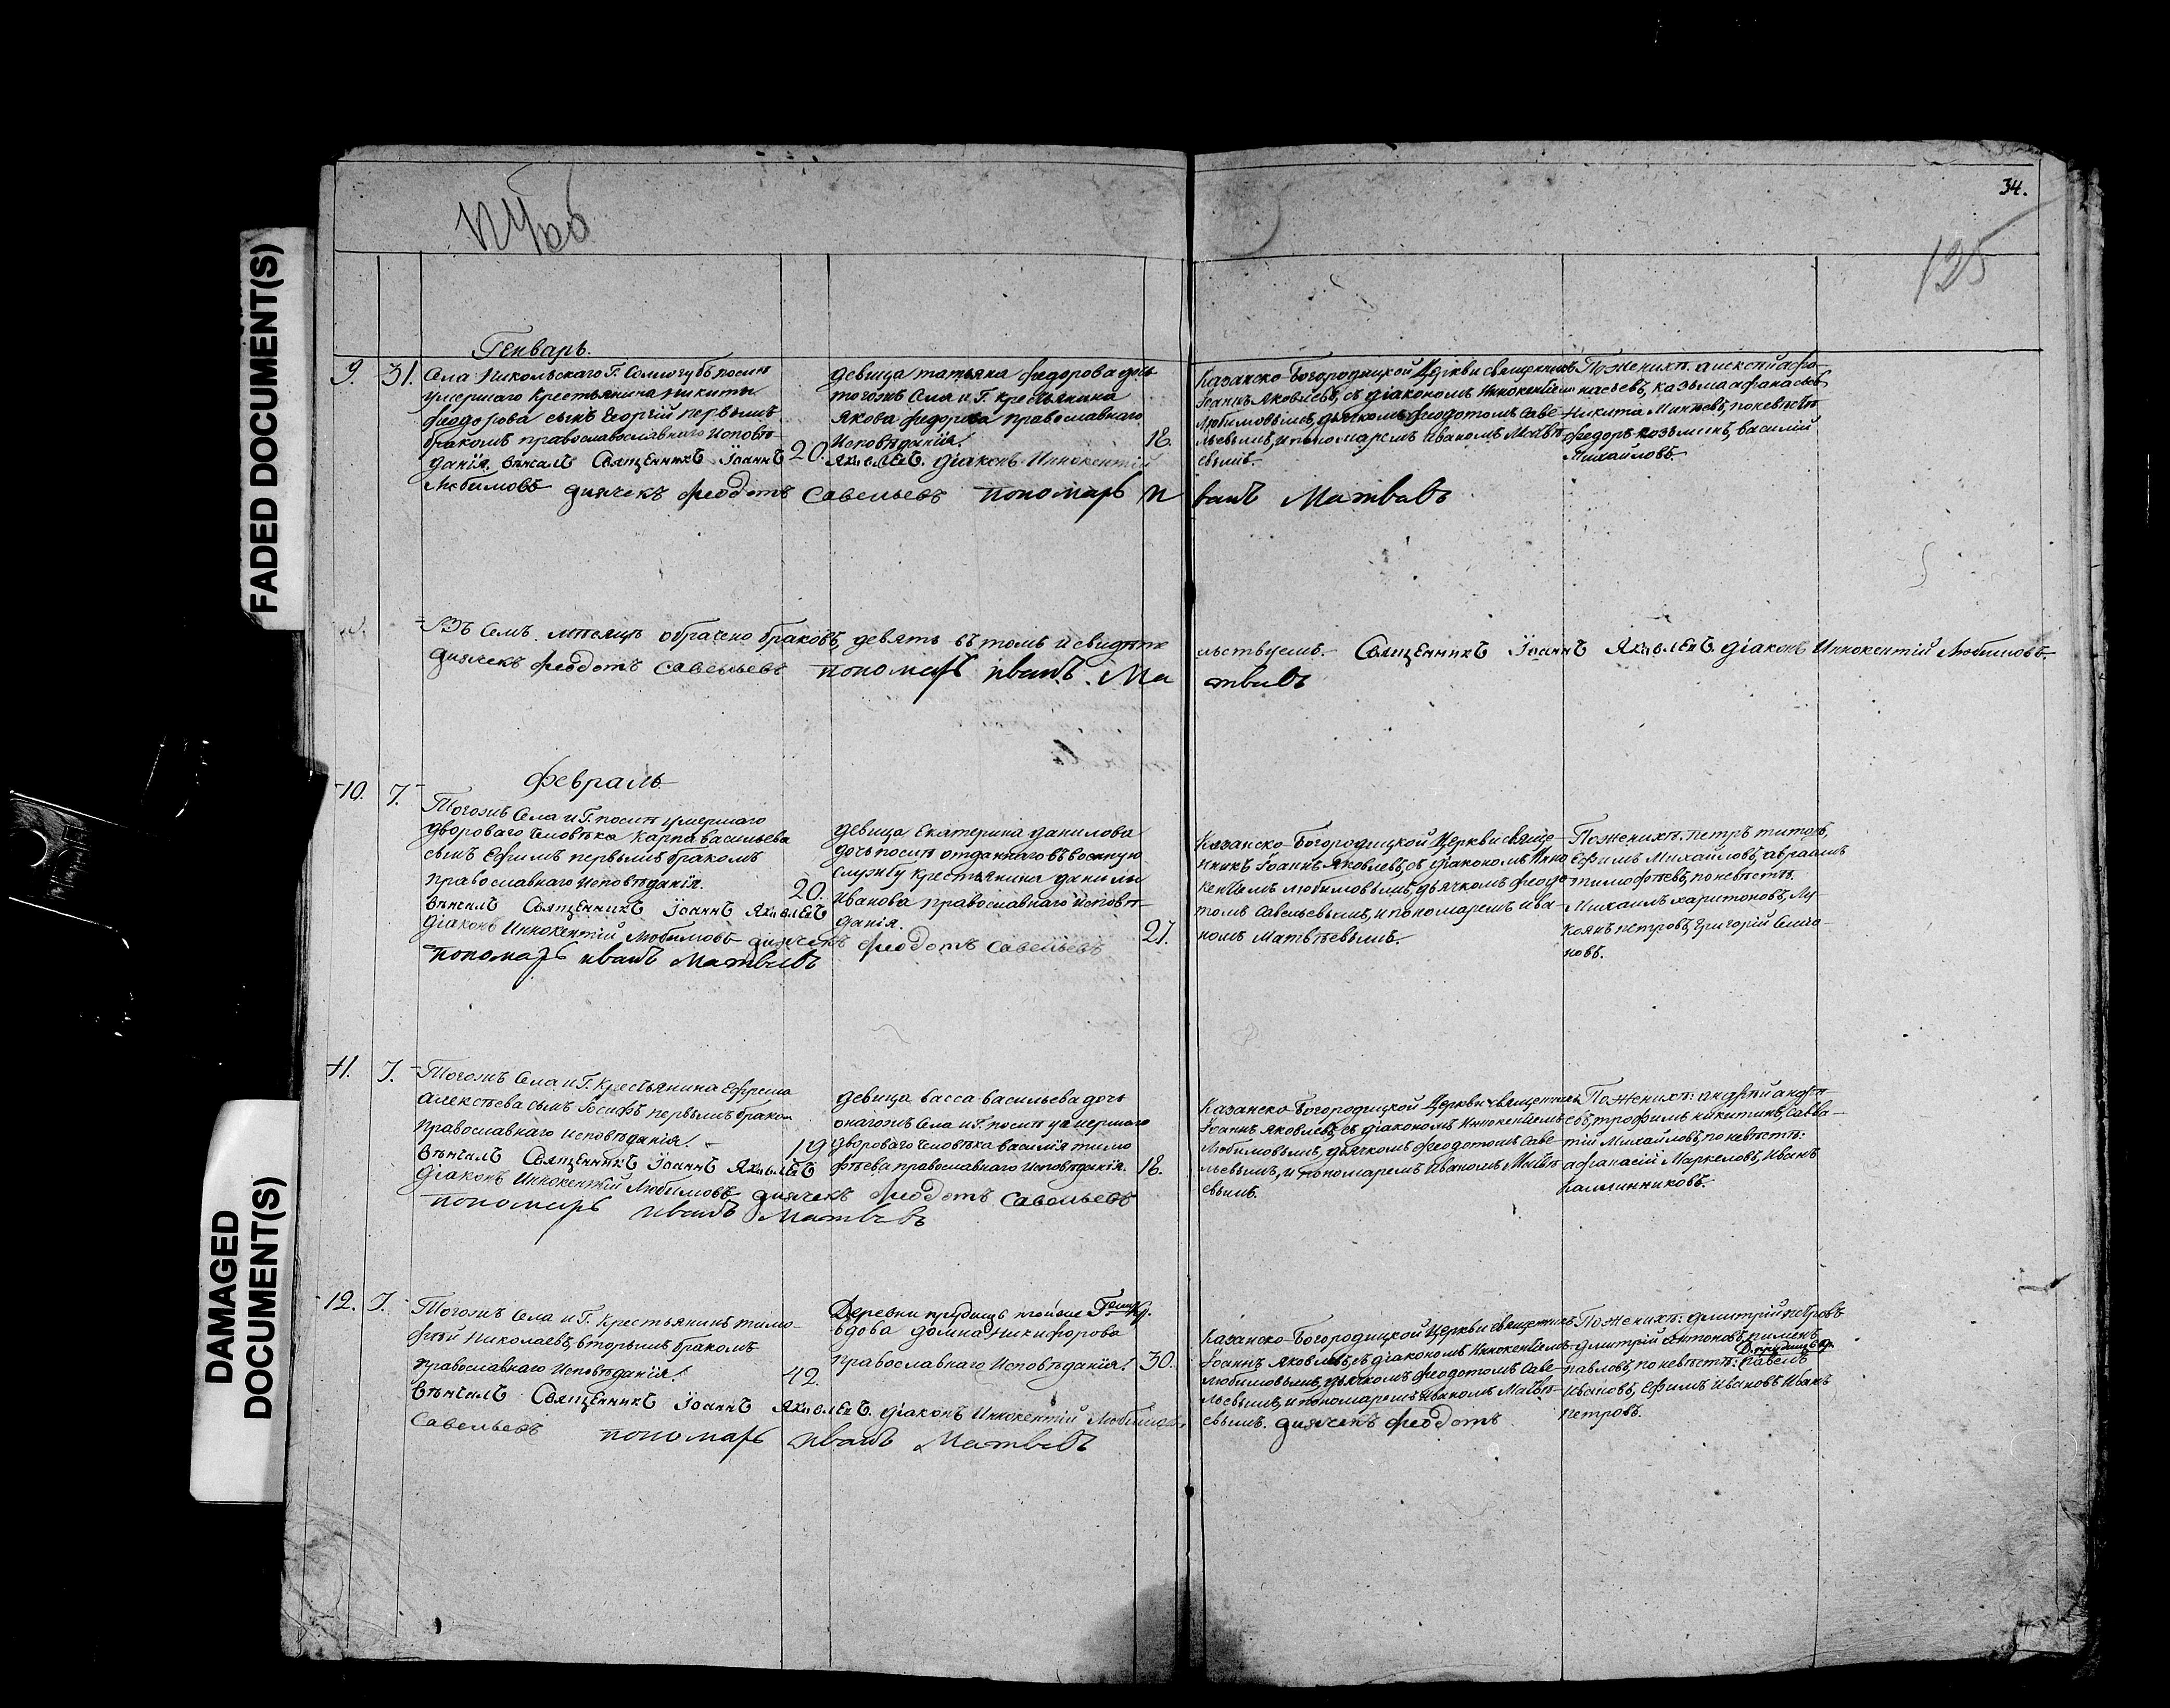 34.
125
FADED DOCUMENT(S)
DAMAGED
DOCUMENT(S)
Генварь.
9. 31. Села Никольскаго Г. Сологубъ послѣ
умершаго Крестьянина Никиты
Федорова сынъ Георгій первымъ
бракомъ православославнаго Исповѣ-
данія. 20.
Вѣнчалъ Священникъ Іоаннъ Яковлевъ. Діаконъ Иннокентій
Любимовъ дьячекъ Феодотъ Савельевъ пономарь Иванъ Матвѣвъ
девица татьяна Федорова дочь
тогожъ Села и Г. крестьянина
Якова Федорова православнаго
Исповѣданія. 18.
Казанско-Богородицкой Церкви священникъ
Іоаннъ Яковлевъ, съ діакономъ Иннокентіемъ
Любимовымъ, дьячкомъ Феодотомъ Саве-
льевымъ, и пономаремъ Иваномъ Матвѣ-
евымъ.
По женихѣ: алексѣй афо-
насьевъ, казьма афанасьевъ
Никита Минѣевъ, по невѣстѣ
федоръ козьминъ, василій
Михайловъ.
Въ Семъ мѣсяцѣ обрачено браковъ девять въ томъ и свидѣтельствуемъ.- Священникъ Іоаннъ Яковлевъ. діаконъ Иннокентій Любимовъ.
дьячекъ Феодотъ Савельевъ пономарь Иванъ Матвѣвъ
Февраль
10. 7. Тогожъ Села и Г. послѣ умершаго
двороваго человѣка Карпа васильева
сынъ Ефимъ первымъ бракомъ
православнаго Исповѣданія. 20.
Вѣнчалъ Священникъ Іоаннъ Яковлевъ
Діаконъ Иннокентій Любимовъ дьячекъ Феодотъ Савельевъ
пономарь Иванъ Матвѣвъ
девица Екатерина данилова
дочь послѣ отданнаго въ военную
службу крестьянина данилы
Иванова православнаго исповѣ-
данія. 21.
Казанско-Богородицкой Церкви свяще-
нникъ Іоаннъ Яковлевъ, съ діакономъ Инно
кентіемъ Любимовымъ, дьячкомъ Феодо
томъ Савельевымъ, и пономаремъ Ива-
номъ Матвѣевымъ.
По женихѣ: петръ титовъ,
Ефимъ Михайловъ, авраамъ
тимофѣевъ, по невѣстѣ:
Михаилъ харитоновъ, Лу-
коянъ петровъ, Григорій Симо-
новъ.
11. 7. Тогожъ Села и Г. Крестьянина Ефрема
алексѣева сынъ Іосифъ первымъ бракомъ
Православнаго исповѣданія. 19
Вѣнчалъ Священникъ Іоаннъ Яковлевъ
Діаконъ Иннокентій Любимовъ дьячекъ Феодотъ Савельевъ
пономарь Иванъ Матвѣвъ
девица васса васильева дочь
онагожъ Села и Г. послѣ умершаго
двороваго человѣка василія тимо
фѣева православнаго Исповѣданія. 18.
Казанско-Богородицкой Церкви священникъ
Іоаннъ Яковлевъ, съ діакономъ Иннокентіемъ
Любимовымъ, дьячкомъ Феодотомъ Саве-
льевымъ, и пономаремъ Иваномъ Матвѣ-
евымъ.
По женихѣ: андрѣй андрѣ-
евъ, трофимъ никитинъ, Савва-
тій Михайловъ, по невѣстѣ:
афанасій Маркеловъ, Иванъ
Калинниковъ.
12. 7. Тогожъ Села и Г. Крестьянинъ тимо-
фѣй Николаевъ, вторымъ бракомъ
Православнаго Исповѣданія. 42.
Вѣнчалъ Священникъ Іоаннъ Яковлевъ. діаконъ Иннокентій Любимовъ, дьячекъ Феодотъ
Савельевъ пономарь Иванъ Матвѣвъ
вдова домна Никифорова
православнаго Исповѣданія. 30.
Казанско-Богородицкой Церкви священникъ
Іоаннъ Яковлевъ, съ діакономъ Иннокентіемъ
Любимовымъ, дьячкомъ Феодотомъ Саве-
льевымъ, и пономаремъ Иваномъ Матвѣ-
евымъ.
По женихѣ: дмитрій петровъ
дмитрій антоновъ, пименъ
павловъ, по невѣстѣ: павелъ
Ивановъ, Ефимъ Ивановъ Иванъ
петровъ.